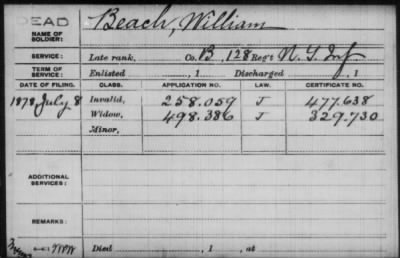 DEAD
NAME OF SOLDIER: Beach, William
SERVICE: Late rank, Co. B, 128 Reg't N.Y. Inf.
TERM OF SERVICE: Enlisted , 1 Discharged , 1
DATE OF FILING. CLASS. APPLICATION NO. LAW. CERTIFICATE NO.
1878, July 8 Invalid, 258.059 J 477.638
Widow, 498.386 J 329.730
Minor,
ADDITIONAL SERVICES:
REMARKS:
Died , 1 , at